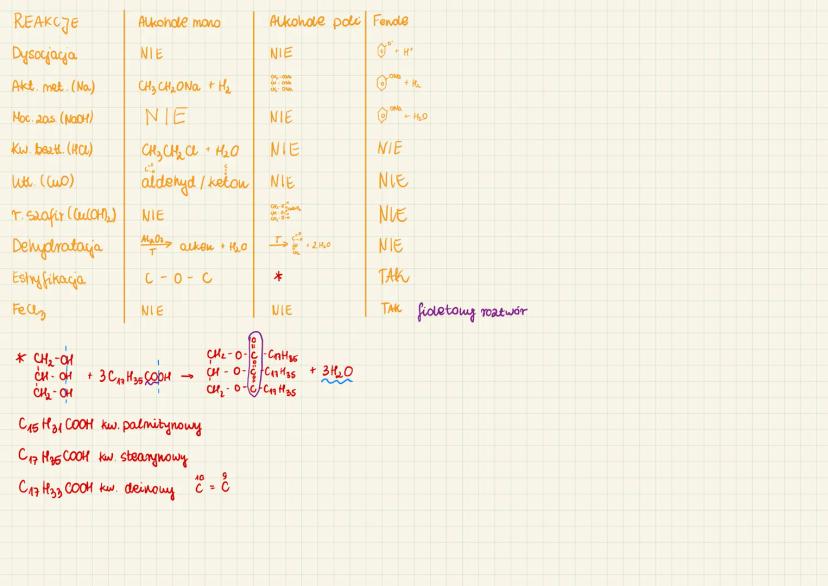 REAKCJE Alkohole mono Alkohole poli Fenole
Dysocjacja NIE NIE O⁻ + H⁺
Akt. met. (Na) CH₃CH₂ONa + H₂ CH₂-ONa CH-ONa CH₂-ONa ONa + H₂
Moc. zas. (NaOH) NIE NIE ONa + H₂O
Kw. beztl. (HCl) CH₃CH₂Cl + H₂O NIE NIE
Utl. (CuO) aldehyd / keton NIE NIE
r. szafir (Cu(OH)₂) NIE NIE
Dehydratacja Al₂O₃ T alken + H₂O T + 2H₂O NIE
Estryfikacja C - O - C * TAK
FeCl₃ NIE NIE TAK fioletowy roztwór
* CH₂-OH CH₂ - O - C - C₁₇H₃₅
CH - OH + 3 C₁₇H₃₅COOH → CH - O - C - C₁₇H₃₅ + 3H₂O
CH₂ - OH CH₂ - O - C - C₁₇H₃₅
C₁₅H₃₁COOH kw. palmitynowy
C₁₇H₃₅COOH kw. stearynowy
C₁₇H₃₃COOH kw. oleinowy 10 C = 9 C